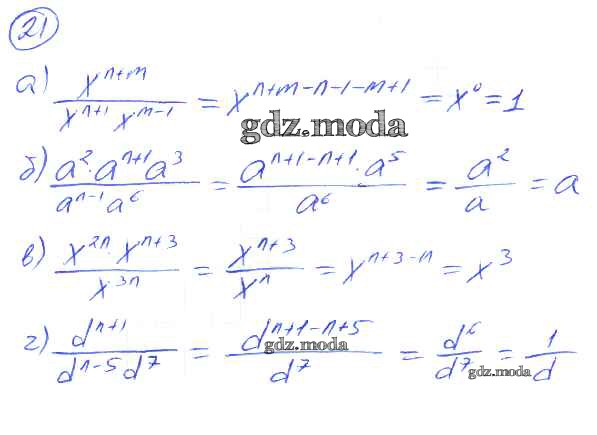 21
а) x^{n+m} / x^{n+1} x^{m-1} = x^{n+m-n-1-m+1} = x^0 = 1
gdz.moda
б) a^2 · a^{n+1} a^3 / a^{n-1} a^6 = a^{n+1-n+1} · a^5 / a^6 = a^2 / a = a
в) x^{2n} · x^{n+3} / x^{3n} = x^{n+3} / x^n = x^{n+3-n} = x^3
г) d^{n+1} / d^{n-5} d^7 = d^{n+1-n+5} / d^7 = d^6 / d^7 = 1 / d
gdz.moda
gdz.moda